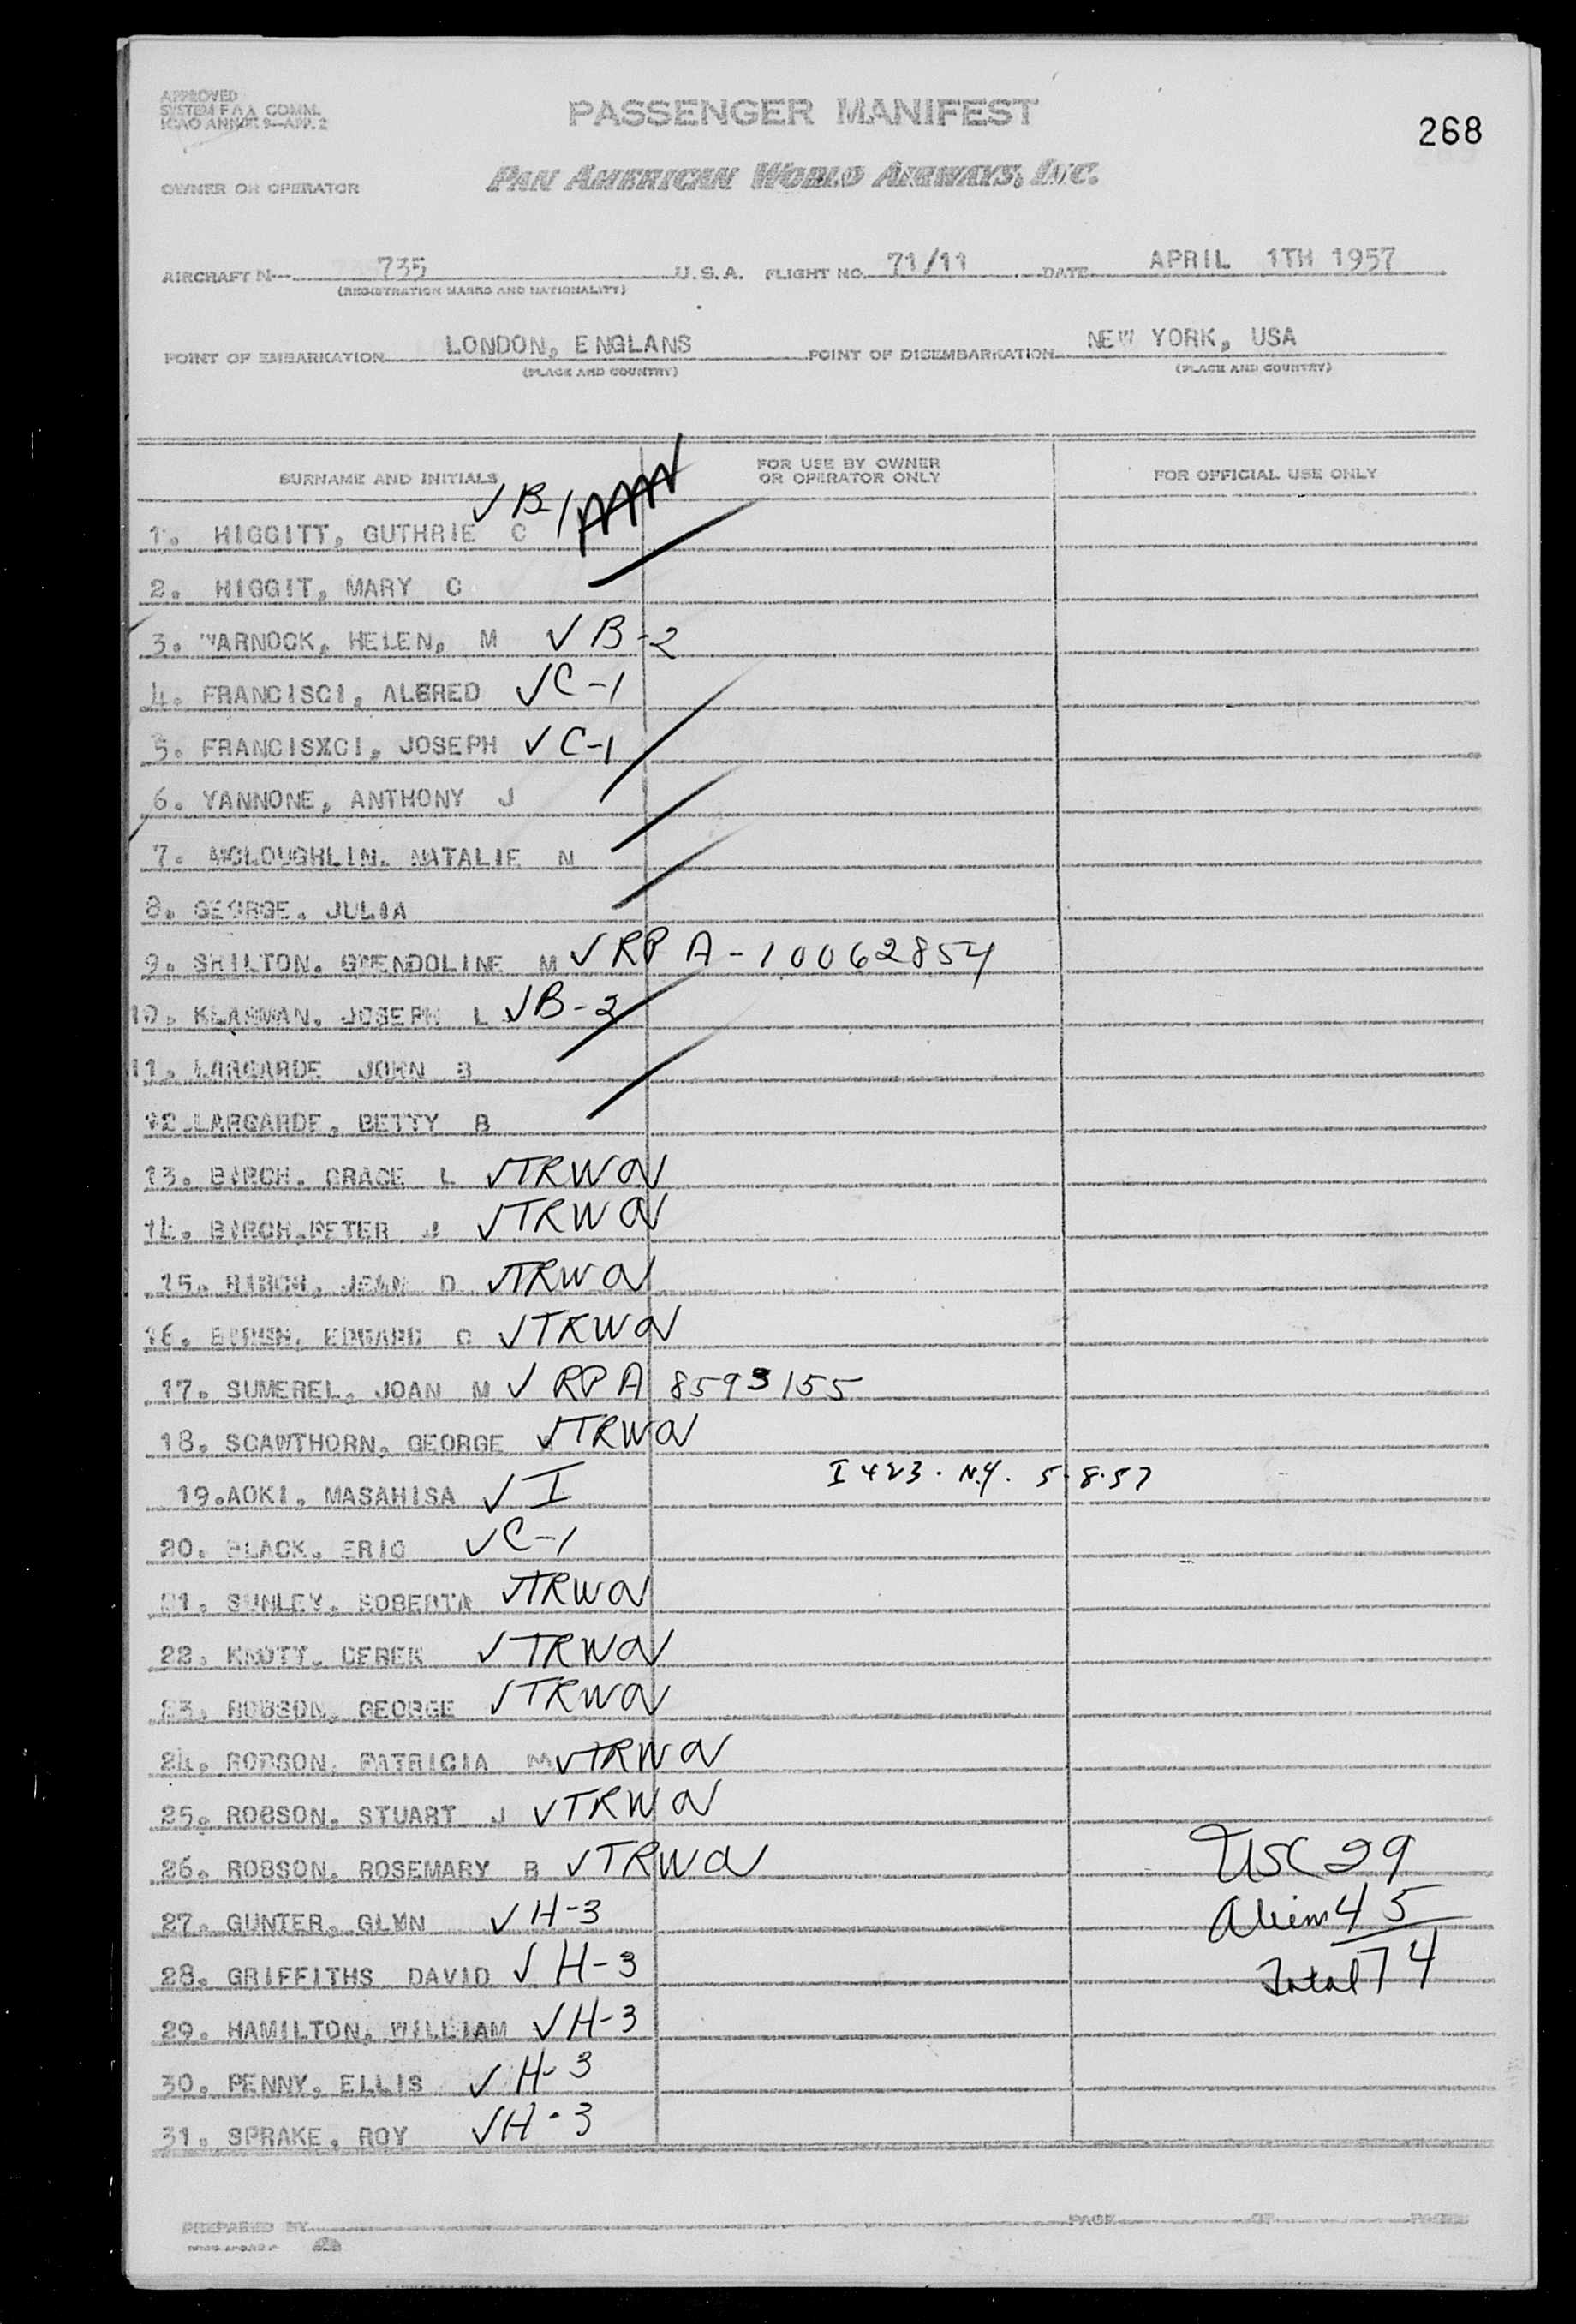 APPROVED
SYSTEM F A A COMM.
ICAO ANNEX 9—APP. 2
PASSENGER MANIFEST
268
OWNER OR OPERATOR
PAN AMERICAN WORLD AIRWAYS, INC.
AIRCRAFT N 735 U.S.A. FLIGHT NO. 71/11 DATE APRIL 1TH 1957
(REGISTRATION MARKS AND NATIONALITY)
POINT OF EMBARKATION LONDON, ENGLANS POINT OF DISEMBARKATION NEW YORK, USA
(PLACE AND COUNTRY) (PLACE AND COUNTRY)
SURNAME AND INITIALS FOR USE BY OWNER OR OPERATOR ONLY FOR OFFICIAL USE ONLY
1. HIGGITT, GUTHRIE C ✓ B-1
2. HIGGIT, MARY C
3. WARNOCK, HELEN, M ✓ B-2
4. FRANCISCI, ALBRED ✓ C-1
5. FRANCISXCI, JOSEPH ✓ C-1
6. YANNONE, ANTHONY J
7. MCLOUGHLIN, NATALIE N
8. GEORGE, JULIA
9. SHILTON, GWENDOLINE M ✓ RP A-10062854
10. KLARMAN, JOSEPH L ✓ B-2
11. LARGARDE JOHN B
12. LARGARDE, BETTY B
13. BIRCH, GRACE L ✓ TRWOV
14. BIRCH, PETER J ✓ TRWOV
15. BIRCH, JEAN D ✓ TRWOV
16. BIRCH, EDWARD C ✓ TRWOV
17. SUMEREL, JOAN M ✓ RP A 8593155
18. SCAWTHORN, GEORGE ✓ TRWOV
19. AOKI, MASAHISA ✓ I I 423. N.Y. 5.8.57
20. BLACK, ERIC ✓ C-1
21. SUNLEY, ROBERTA ✓ TRWOV
22. KNOTT, DEREK ✓ TRWOV
23. ROBSON, GEORGE ✓ TRWOV
24. ROBSON, PATRICIA M ✓ TRWOV
25. ROBSON, STUART J ✓ TRWOV
26. ROBSON, ROSEMARY B ✓ TRWOV
USC 29
27. GUNTER, GLYN ✓ H-3
Aliens 45
28. GRIFFITHS DAVID ✓ H-3
Total 74
29. HAMILTON, WILLIAM ✓ H-3
30. PENNY, ELLIS ✓ H-3
31. SPRAKE, ROY ✓ H-3
PREPARED BY PAGE OF PAGES